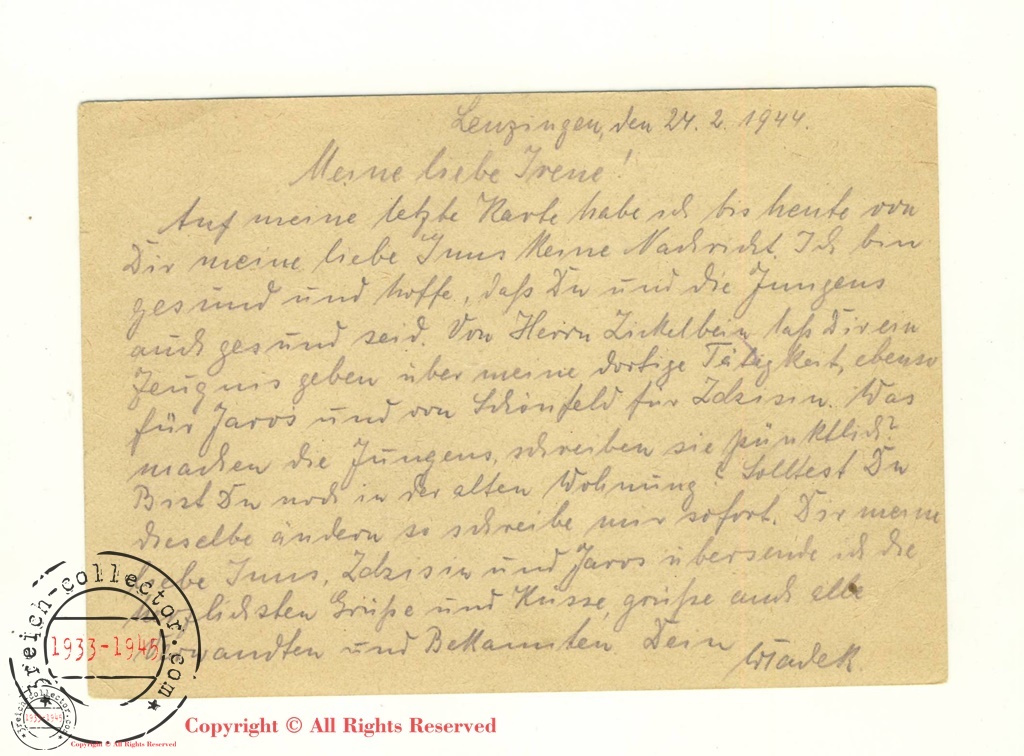 Lenzingen, den 24. 2. 1944.
Meine liebe Irene!
Auf meine letzte Karte habe ich bis heute von
Dir meine liebe Inus keine Nachricht. Ich bin
gesund und hoffe, daß Du und die Jungens
auch gesund seid. Von Herrn Zickelbein laß Dir ein
Zeugnis geben über meine dortige Tätigkeit, ebenso
für Jaros und von Schönfeld für Zdzisin. Was
machen die Jungens, schreiben sie pünktlich?
Bist Du noch in der alten Wohnung? Solltest Du
dieselbe ändern so schreibe mir sofort. Dir meine
liebe Inus, Zdzisin und Jaros übersende ich die
herzlichsten Grüße und Küsse, grüße auch alle
Verwandten und Bekannten. Dein
Wladek
3reich-collector.com
1933-1945
3reich-collector.com
1933-1945
Copyright © All Rights Reserved
Copyright © All Rights Reserved